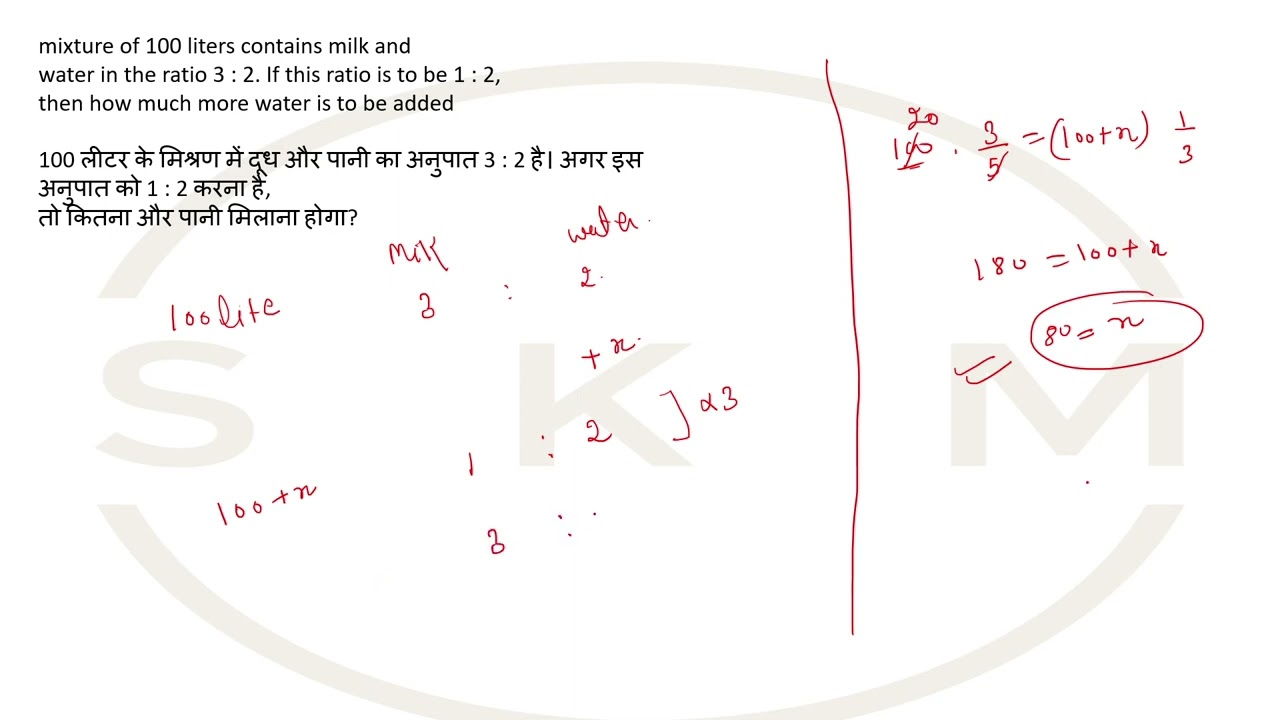 mixture of 100 liters contains milk and
water in the ratio 3 : 2. If this ratio is to be 1 : 2,
then how much more water is to be added
100 लीटर के मिश्रण में दूध और पानी का अनुपात 3 : 2 है। अगर इस
अनुपात को 1 : 2 करना है,
तो कितना और पानी मिलाना होगा?
Milk water
100 lite 3 : 2
+ x
1 : 2 ] x3
100 + x
3 :
20
100 . 3/5 = (100+x) 1/3
180 = 100 + x
80 = x
S K M